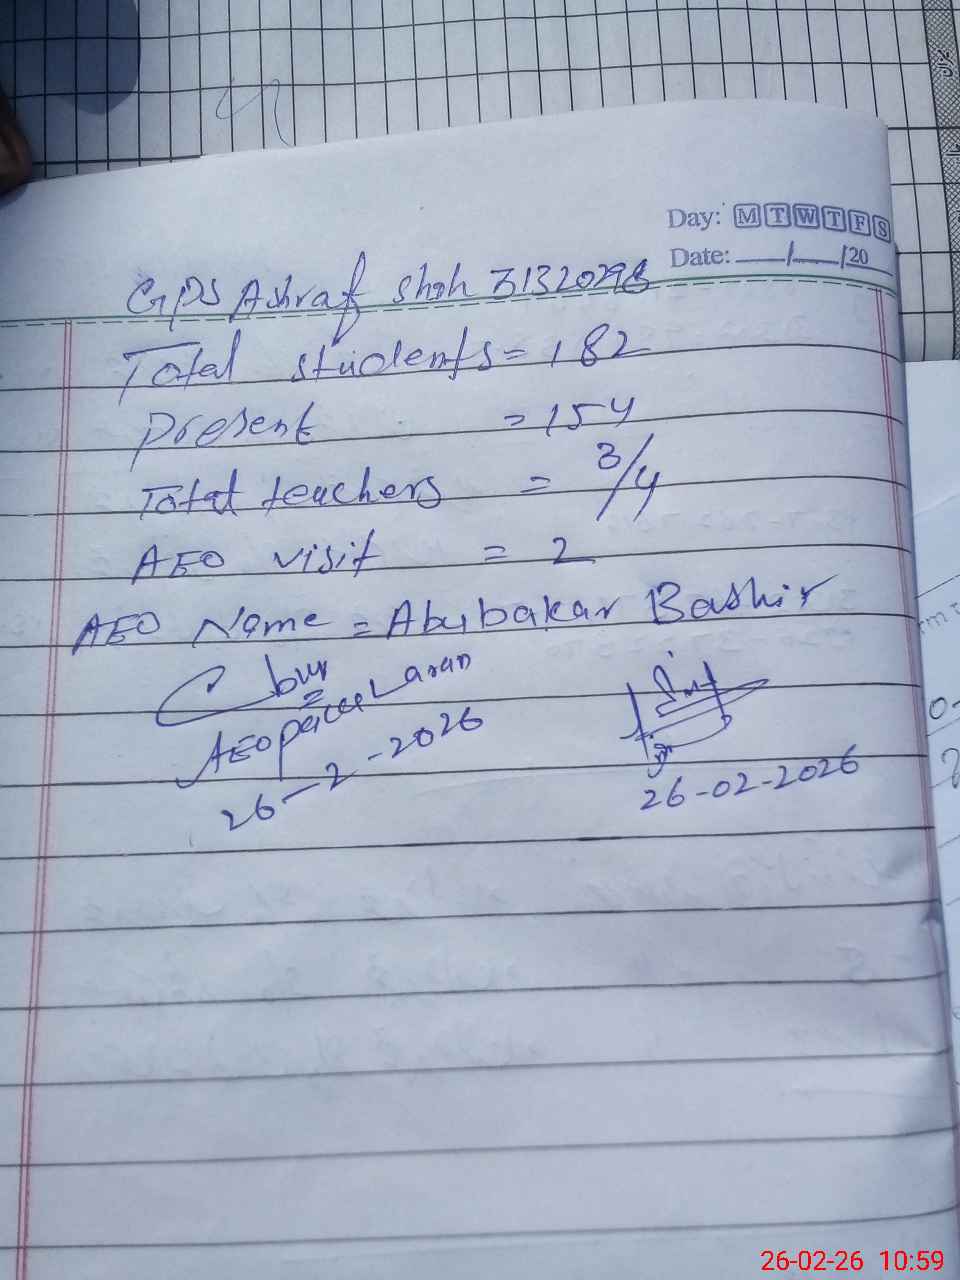 Day: M T W T F S
Date: ___/___/20
GPS Ashraf Shah 31320298
Total students = 182
Present = 154
Total teachers = 3/4
AEO visit = 2
AEO Name = Abubakar Bashir
AEO Laran
26-2-2026
26-02-2026
26-02-26 10:59